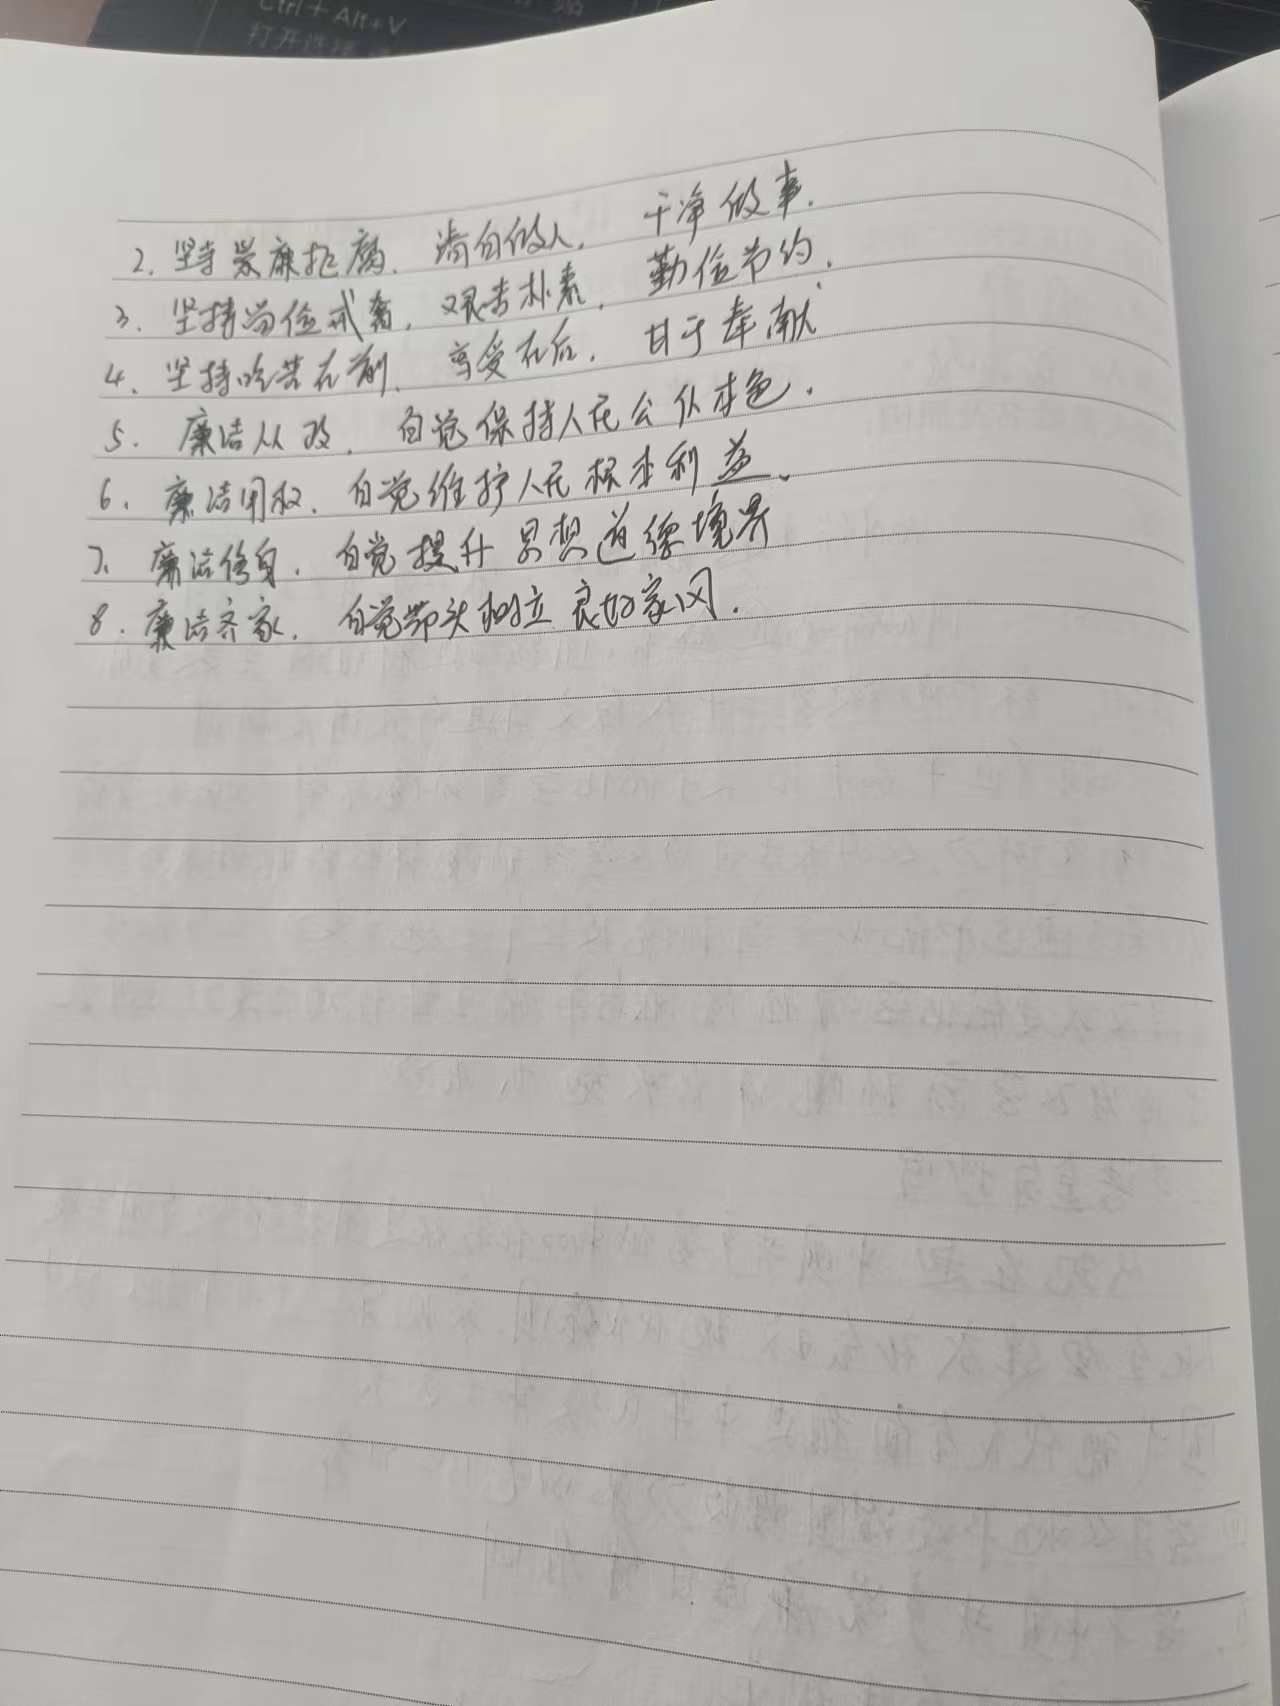 Ctrl+Alt+V
2. 坚持崇廉拒腐、清白做人、干净做事.
3. 坚持尚俭戒奢, 艰苦朴素, 勤俭节约.
4. 坚持吃苦在前、享受在后, 甘于奉献.
5. 廉洁从政, 自觉保持人民公仆本色.
6. 廉洁用权, 自觉维护人民根本利益、
7、廉洁修身, 自觉提升思想道德境界
8. 廉洁齐家, 自觉带头树立良好家风.